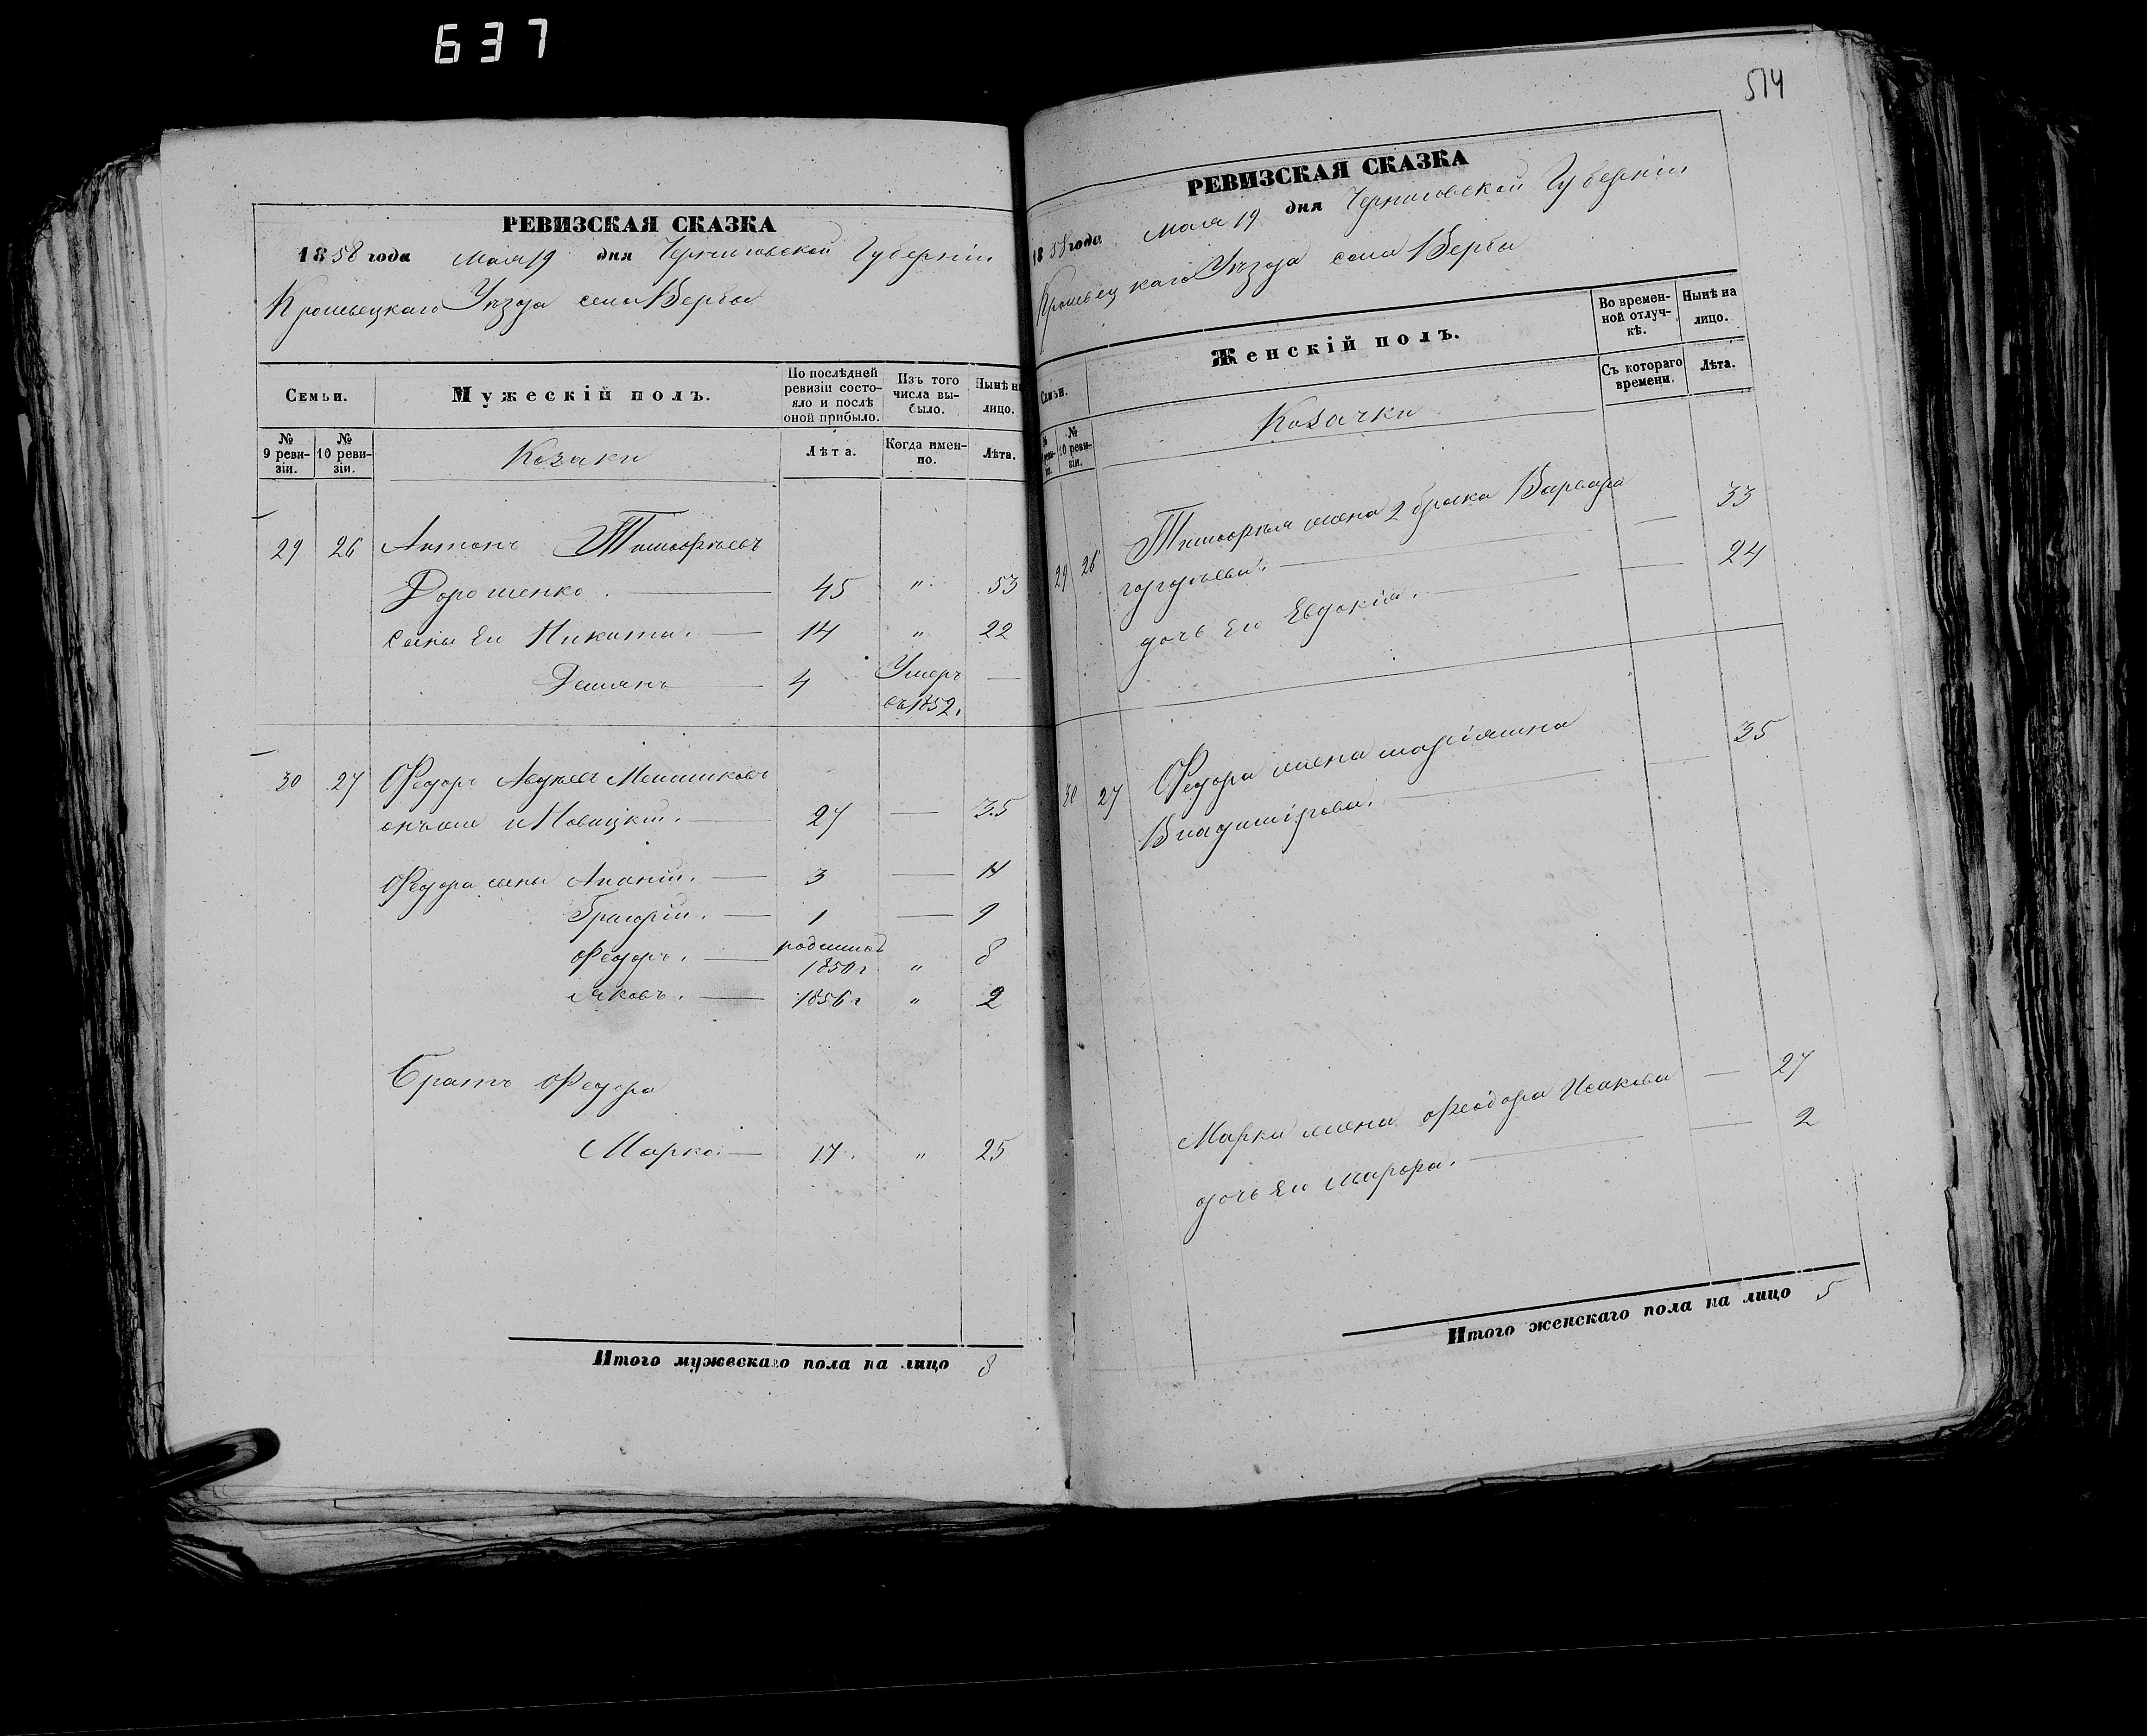 637
514
РЕВИЗСКАЯ СКАЗКА
1858 года Мая 19 дня Черниговской Губерніи
Кролевецкаго Уѣзда села Вербы
Семьи.
Мужескій полъ.
По послѣдней ревизіи состояло и послѣ оной прибыло.
Изъ того числа выбыло.
Нынѣ на лицо.
№ 9 ревизіи.
№ 10 ревизіи.
Козаки
Лѣта.
Когда именно.
Лѣта.
29 26 Антонъ Тимофѣевъ
Дорошенко. 45 " 53
сыны Его Никита. 14 " 22
Демянъ 4 Умеръ —
въ 1852.
30 27 Федоръ Авдѣевъ
онъ же и Новицкій. 27 — 35
Федора сыны Ананій. 3 — 11
Григорій. 1 — 9
Федоръ. родился 1850 г " 8
Яковъ. 1856 г " 2
Братъ Федора
Марко. 17. " 25
Итого мужескаго пола на лицо 8
РЕВИЗСКАЯ СКАЗКА
1858 года Мая 19 дня Черниговской Губерніи
Кролевецкаго Уѣзда села Вербы
Семьи.
Женскій полъ.
Во временной отлучкѣ.
Нынѣ на лицо.
№ ревизіи.
№ 10 ревизіи.
Козачки
Съ котораго времени.
Лѣта.
29 26 Тимофѣя жена 2 брака Варвара
— 33
дочь Его Евдокія. — 24
30 27 Федора жена маріямна
Владимірова. — 35
Марка жена феодора Исакова — 27
дочь Его марфа. — 2
Итого женскаго пола на лицо 5